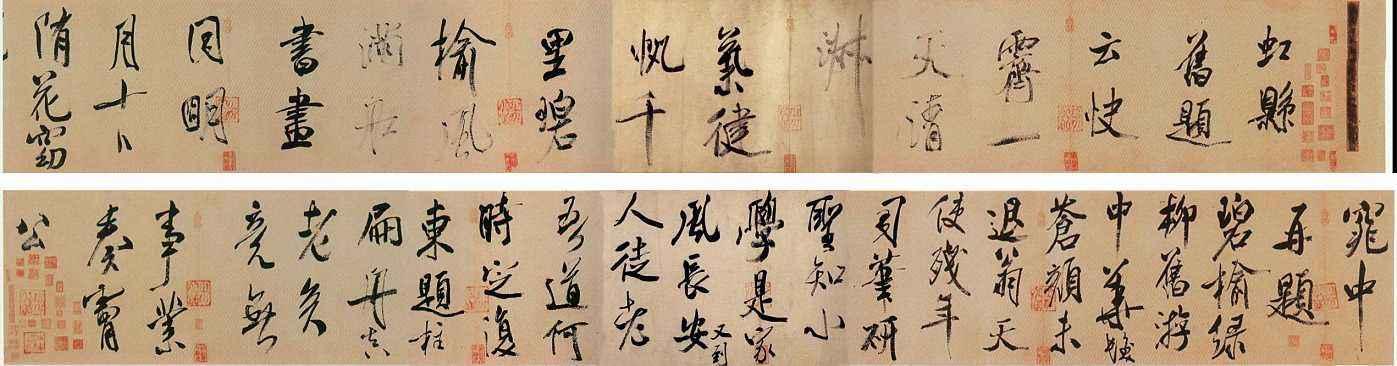 虹縣
舊題
云快
霽一
天清
淑
氣健
帆千
里碧
榆風
滿舟
書畫
同明
月十日
隋花窈
窕中
再題
碧榆綠
柳舊遊
中華髮
蒼顏未
退翁天
使殘年
司筆研
聖知小
學是家
風長安又到
人徒老
吾道何
時定復
東題柱
扁舟真
老矣
竟無
事業
奏膚
公